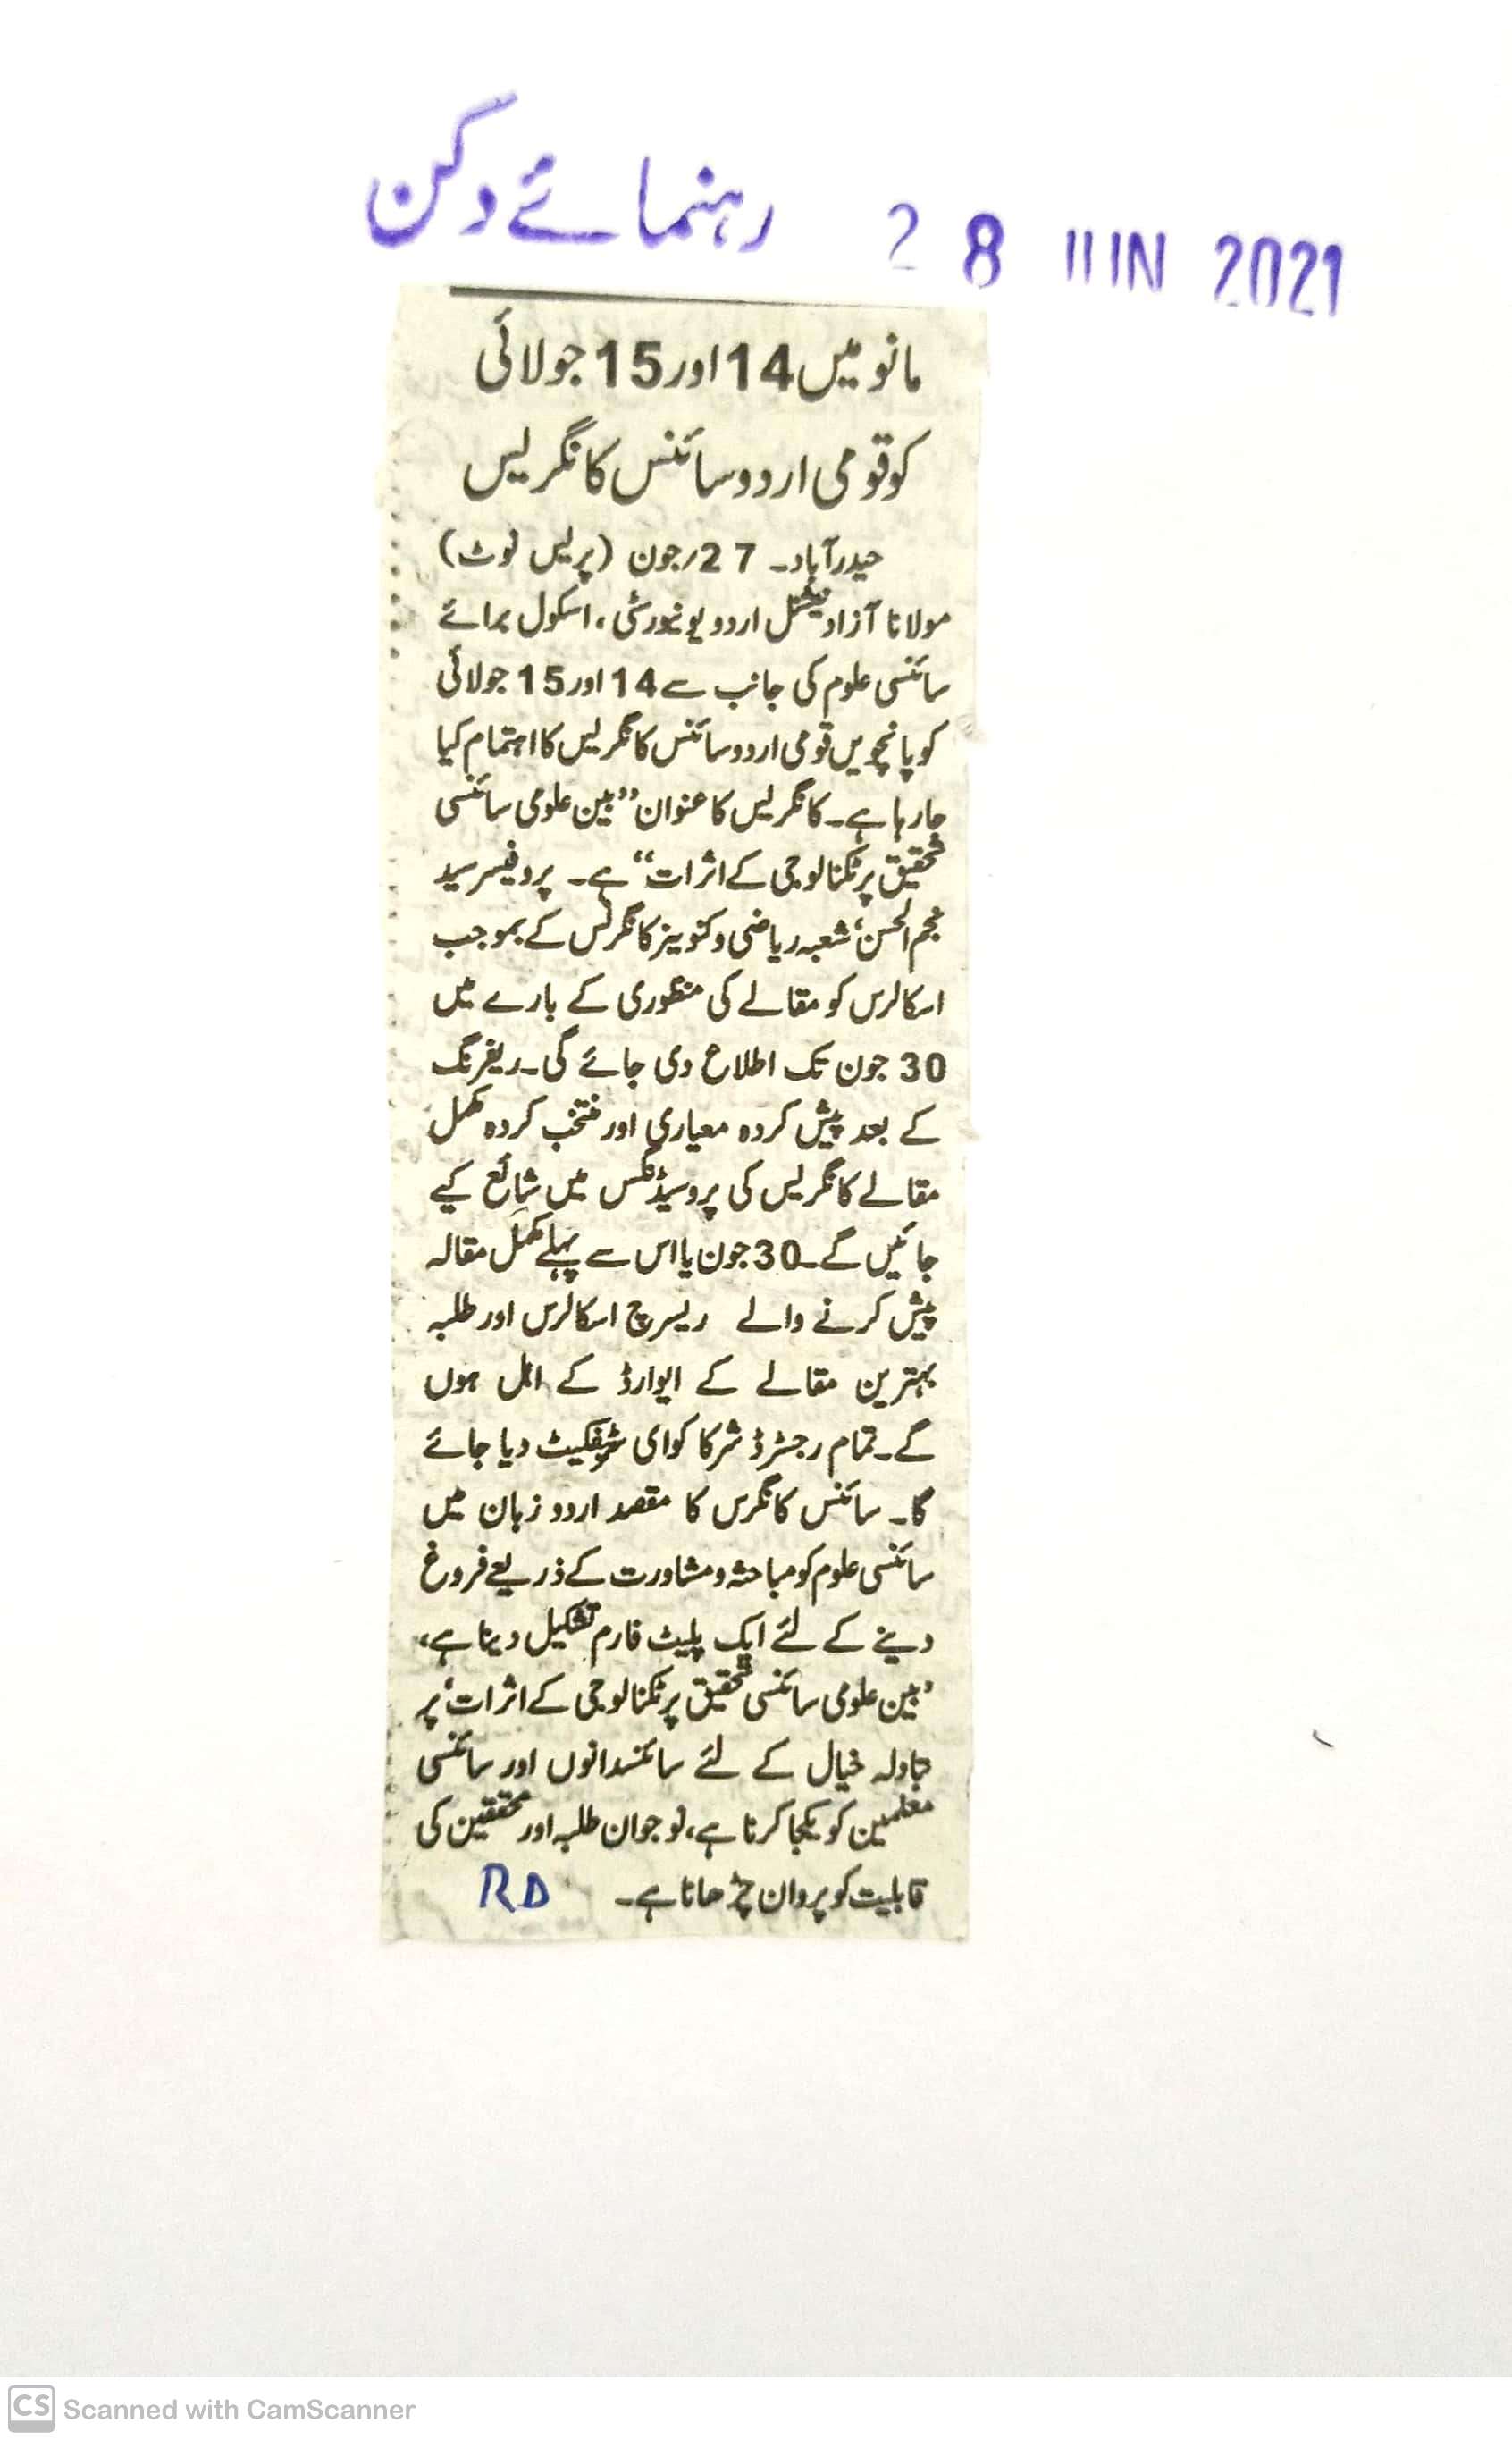 رہنمائے دکن 28 JUN 2021
مانو میں 14 اور 15 جولائی
کو قومی اردو سائنس کانگریس
حیدرآباد۔ 27؍جون (پریس نوٹ)
مولانا آزاد نیشنل اردو یونیورسٹی، اسکول برائے
سائنسی علوم کی جانب سے 14 اور 15 جولائی
کو پانچویں قومی اردو سائنس کانگریس کا اہتمام کیا
جارہا ہے۔ کانگریس کا عنوان ”بین علومی سائنسی
تحقیق پر ٹکنالوجی کے اثرات“ ہے۔ پروفیسر سید
نجم الحسن، شعبہ ریاضی و کنوینر کانگرس کے بموجب
اسکالرس کو مقالے کی منظوری کے بارے میں
30 جون تک اطلاع دی جائے گی۔ ریفرنگ
کے بعد پیش کردہ معیاری اور منتخب کردہ مکمل
مقالے کانگریس کی پروسیڈنگس میں شائع کیے
جائیں گے۔ 30 جون یا اس سے پہلے مکمل مقالہ
پیش کرنے والے ریسرچ اسکالرس اور طلبہ
بہترین مقالے کے ایوارڈ کے اہل ہوں
گے۔ تمام رجسٹرڈ شرکا کو ای سرٹیفکیٹ دیا جائے
گا۔ سائنس کانگرس کا مقصد اردو زبان میں
سائنسی علوم کو مباحثہ و مشاورت کے ذریعے فروغ
دینے کے لئے ایک پلیٹ فارم تشکیل دینا ہے،
’بین علومی سائنسی تحقیق پر ٹکنالوجی کے اثرات‘ پر
تبادلہ خیال کے لئے سائنسدانوں اور سائنسی
معلمین کو یکجا کرنا ہے، نوجوان طلبہ اور محققین کی
قابلیت کو پروان چڑھانا ہے۔ RD
CS Scanned with CamScanner